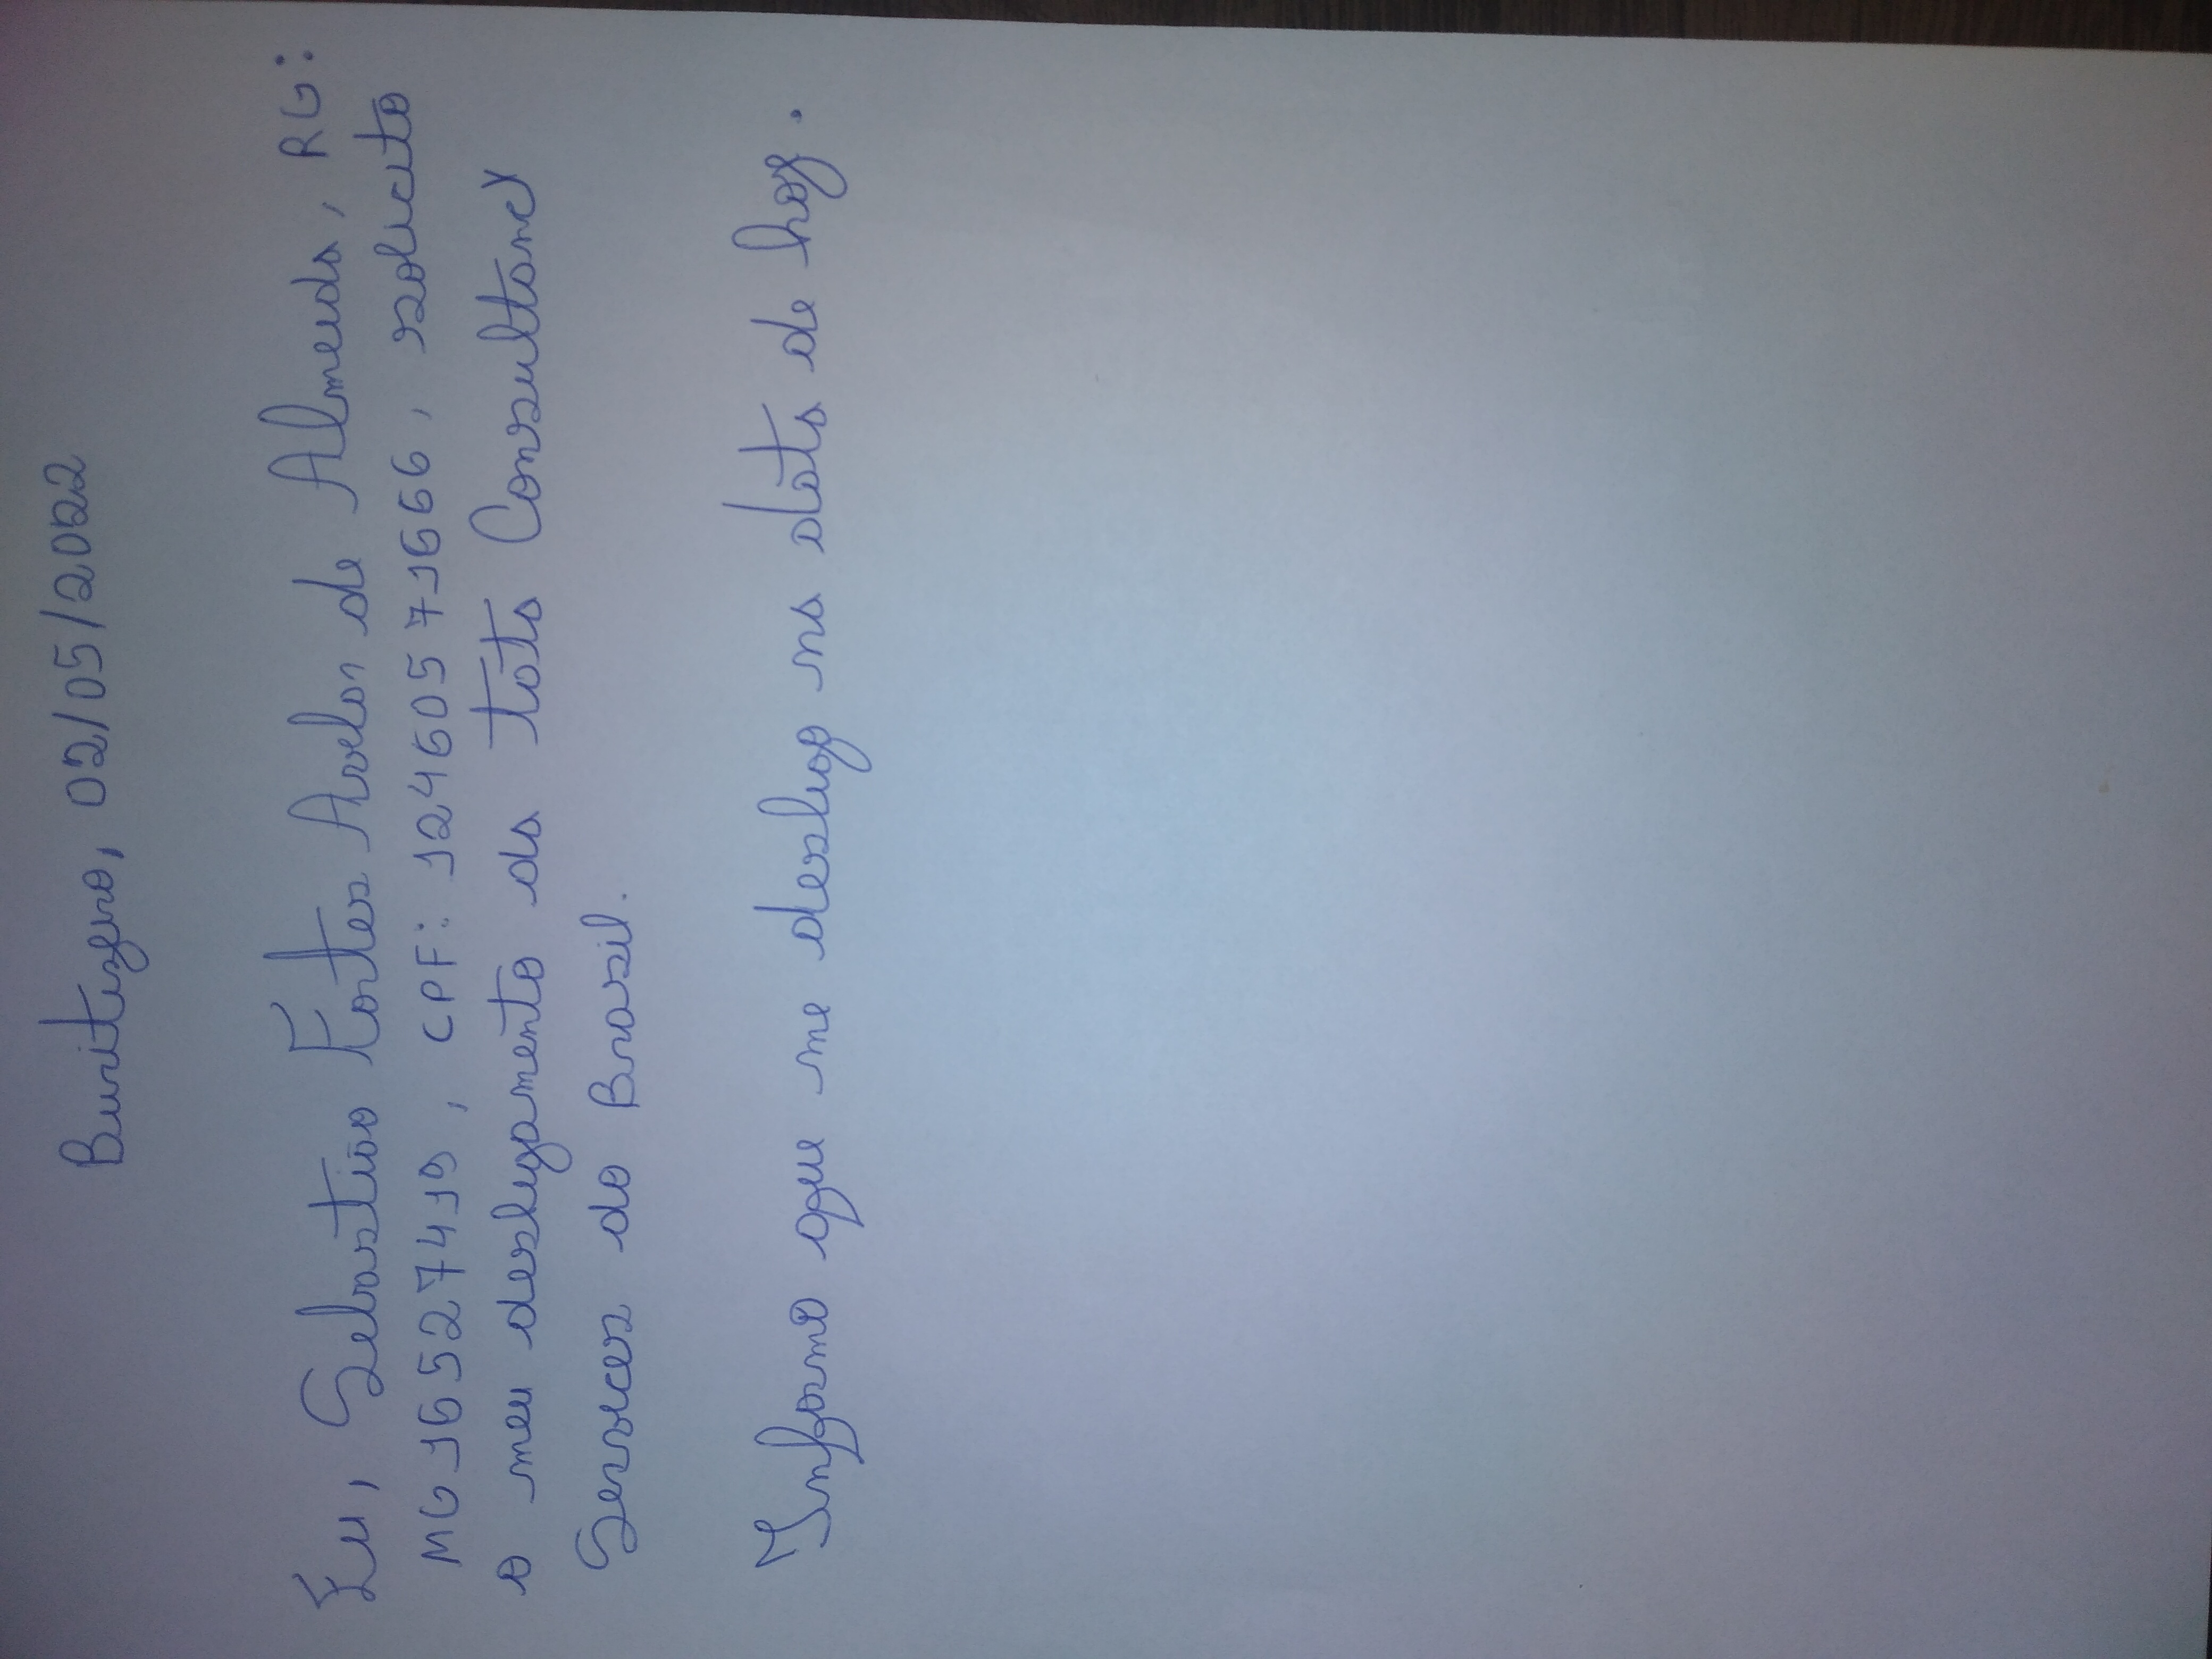 Buritizeiro, 02/05/2022
Eu, Sebastião Fortes Avelar de Almeida, RG:
MG16527419, CPF: 12460571666, solicito
o meu desligamento da tata Consultancy
Services do Brasil.
Informo que me desligo na data de hoje.